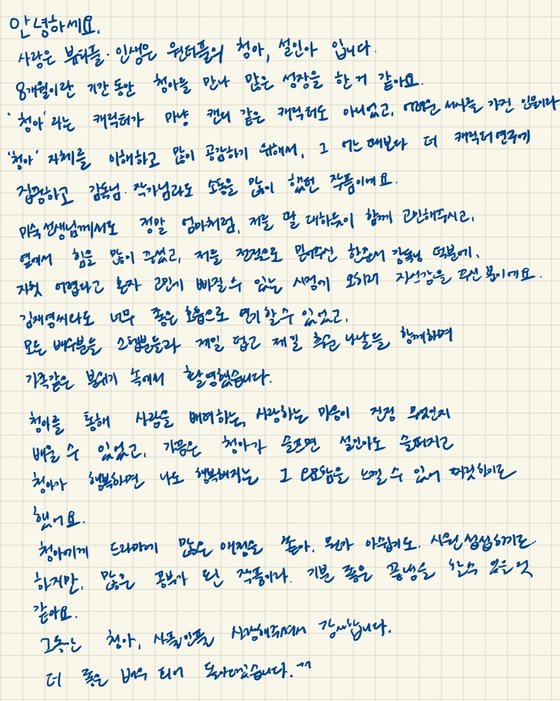 안녕하세요.
사랑은 뷰티풀·인생은 원더풀의 청아, 설인아 입니다.
8개월이란 기간동안 청아를 만나 많은 성장을 한 거 같아요.
'청아'라는 캐릭터가 마냥 캔디 같은 캐릭터도 아니었고, 어려운 서사를 가진 인물이라
'청아' 자체를 이해하고 많이 공감하기 위해서, 그 어느때보다 더 캐릭터연구에
집중하고 감독님·작가님과도 소통을 많이 했던 작품이에요.
미숙선생님께서도 정말 엄마처럼, 저를 딸 대하듯이 함께 고민해주시고,
옆에서 힘을 많이 주셨고, 저를 전적으로 믿어주신 한준서감독님 덕분에,
자칫 어렵다고 혼자 고민에 빠질수 있는 시점에 오히려 자신감을 주신 분이에요.
김재영씨와도 너무 좋은 호흡으로 연기할수 있었고,
모든 배우분들 스탭분들과 제일 덥고 제일 추운 나날들 함께하며
가족같은 분위기 속에서 촬영했습니다.
청아를 통해 사람을 배려하는, 사랑하는 마음이 진정 무엇인지
배울 수 있었고, 가끔은 청아가 슬프면 설인아도 슬퍼지고
청아가 행복하면 나도 행복해지는 그 묘함을 느낄 수 있어 짜릿하기도
했어요.
청아에게 드라마에 많은 애정을 쏟아. 뭔가 아쉽기도. 시원섭섭하기도
하지만, 많은 공부가 된 작품이라. 기분 좋은 끝맺음 할수 있을 것
같아요.
그동안 청아, 사풀인풀 사랑해주셔서 감사합니다.
더 좋은 배우 되어 돌아오겠습니다.^^